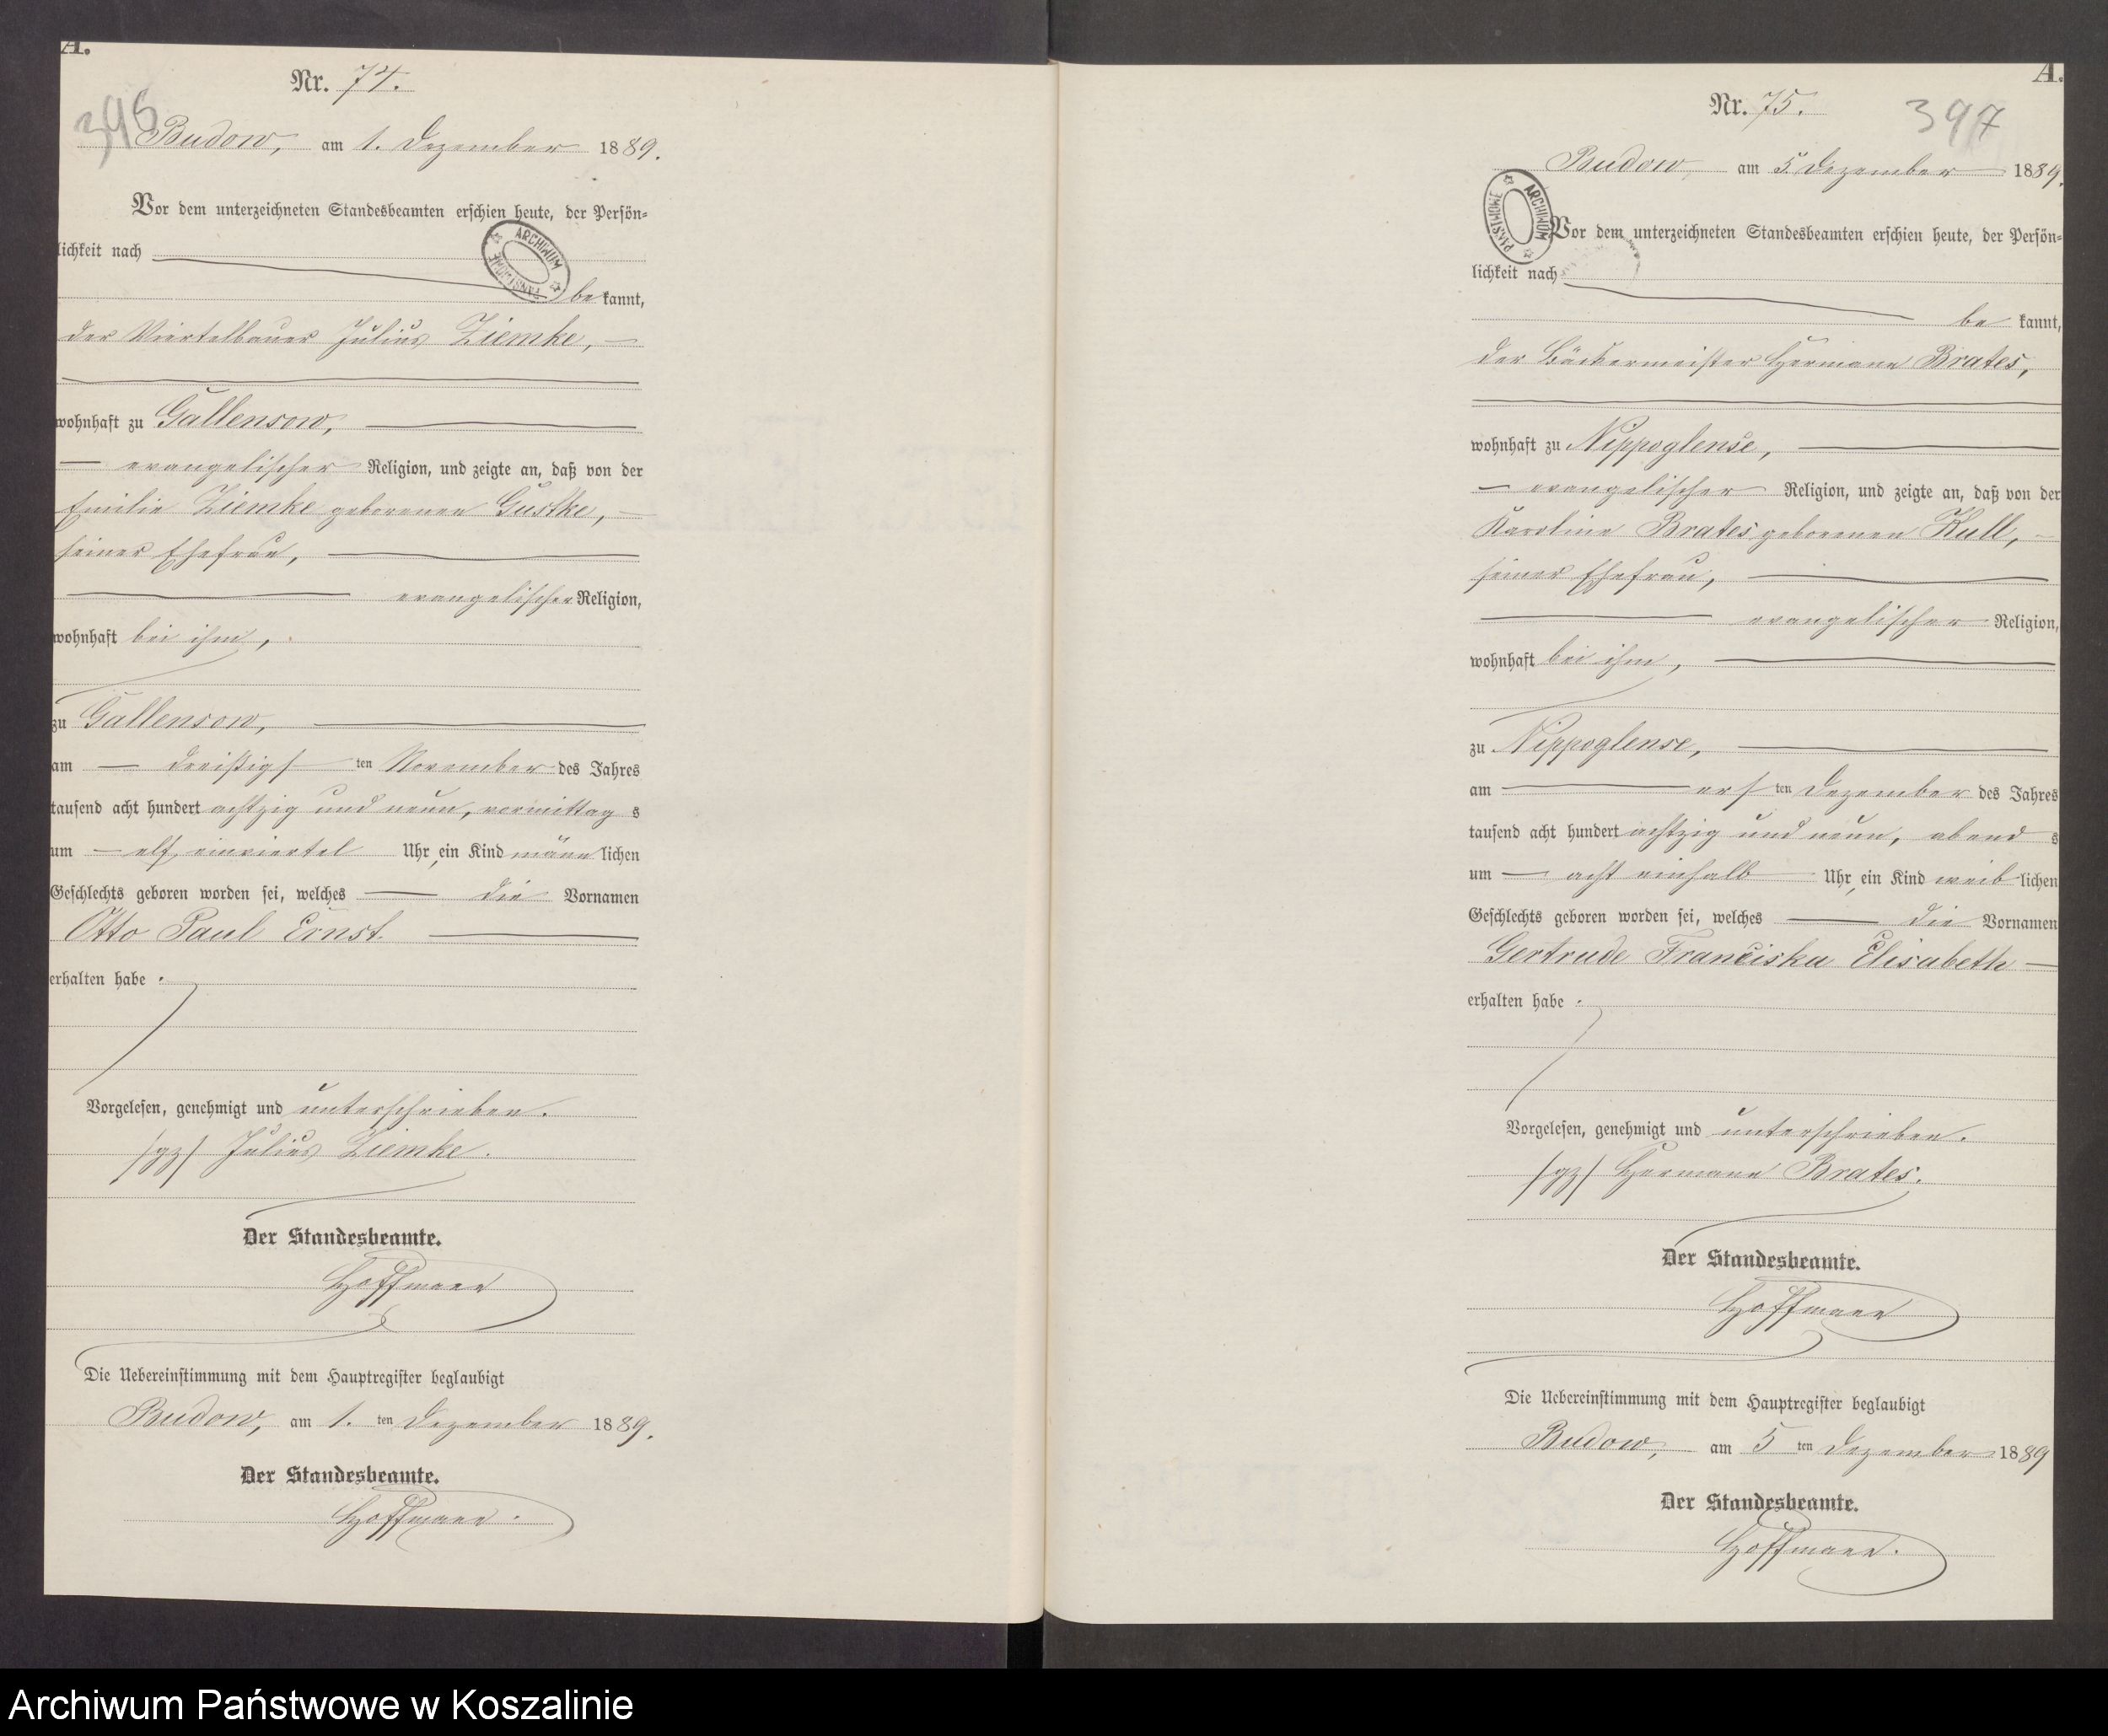 A.
Nr. 74.
396
Budow, am 1. Dezember 1889.
Vor dem unterzeichneten Standesbeamten erschien heute, der Persön=
lichkeit nach
ARCHIWUM PAŃSTWOWE
bekannt,
der Viertelbauer Julius Ziemke,
wohnhaft zu Gallensow,
evangelischer Religion, und zeigte an, daß von der
Emilie Ziemke geborenen Gustke,
seiner Ehefrau,
evangelischer Religion,
wohnhaft bei ihm,
zu Gallensow,
am dreißigsten November des Jahres
tausend acht hundert achtzig und neun, vormittags
um elf einviertel Uhr, ein Kind männlichen
Geschlechts geboren worden sei, welches die Vornamen
Otto Paul Ernst.
erhalten habe.
Vorgelesen, genehmigt und unterschrieben.
/gz/ Julius Ziemke.
Der Standesbeamte.
Hoffmann
Die Uebereinstimmung mit dem Hauptregister beglaubigt
Budow, am 1. ten Dezember 1889.
Der Standesbeamte.
Hoffmann.
A.
Nr. 75.
397
Budow, am 5. Dezember 1889.
ARCHIWUM PAŃSTWOWE
Vor dem unterzeichneten Standesbeamten erschien heute, der Persön=
lichkeit nach
bekannt,
der Bäckermeister Hermann Brates,
wohnhaft zu Nippoglense,
evangelischer Religion, und zeigte an, daß von der
Karoline Brates geborenen Kull,
seiner Ehefrau,
evangelischer Religion,
wohnhaft bei ihm,
zu Nippoglense,
am ersten Dezember des Jahres
tausend acht hundert achtzig und neun, abends
um acht einhalb Uhr, ein Kind weiblichen
Geschlechts geboren worden sei, welches die Vornamen
Gertrude Franciska Elisabeth
erhalten habe.
Vorgelesen, genehmigt und unterschrieben.
/gz/ Hermann Brates.
Der Standesbeamte.
Hoffmann
Die Uebereinstimmung mit dem Hauptregister beglaubigt
Budow, am 5 ten Dezember 1889
Der Standesbeamte.
Hoffmann.
Archiwum Państwowe w Koszalinie